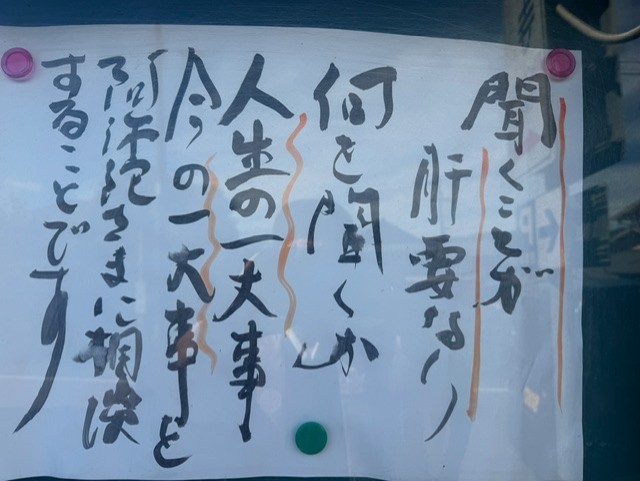 聞くことが
肝要なり
何を聞くか
人生の一大事
今の一大事と
阿弥陀さまに相談
することです